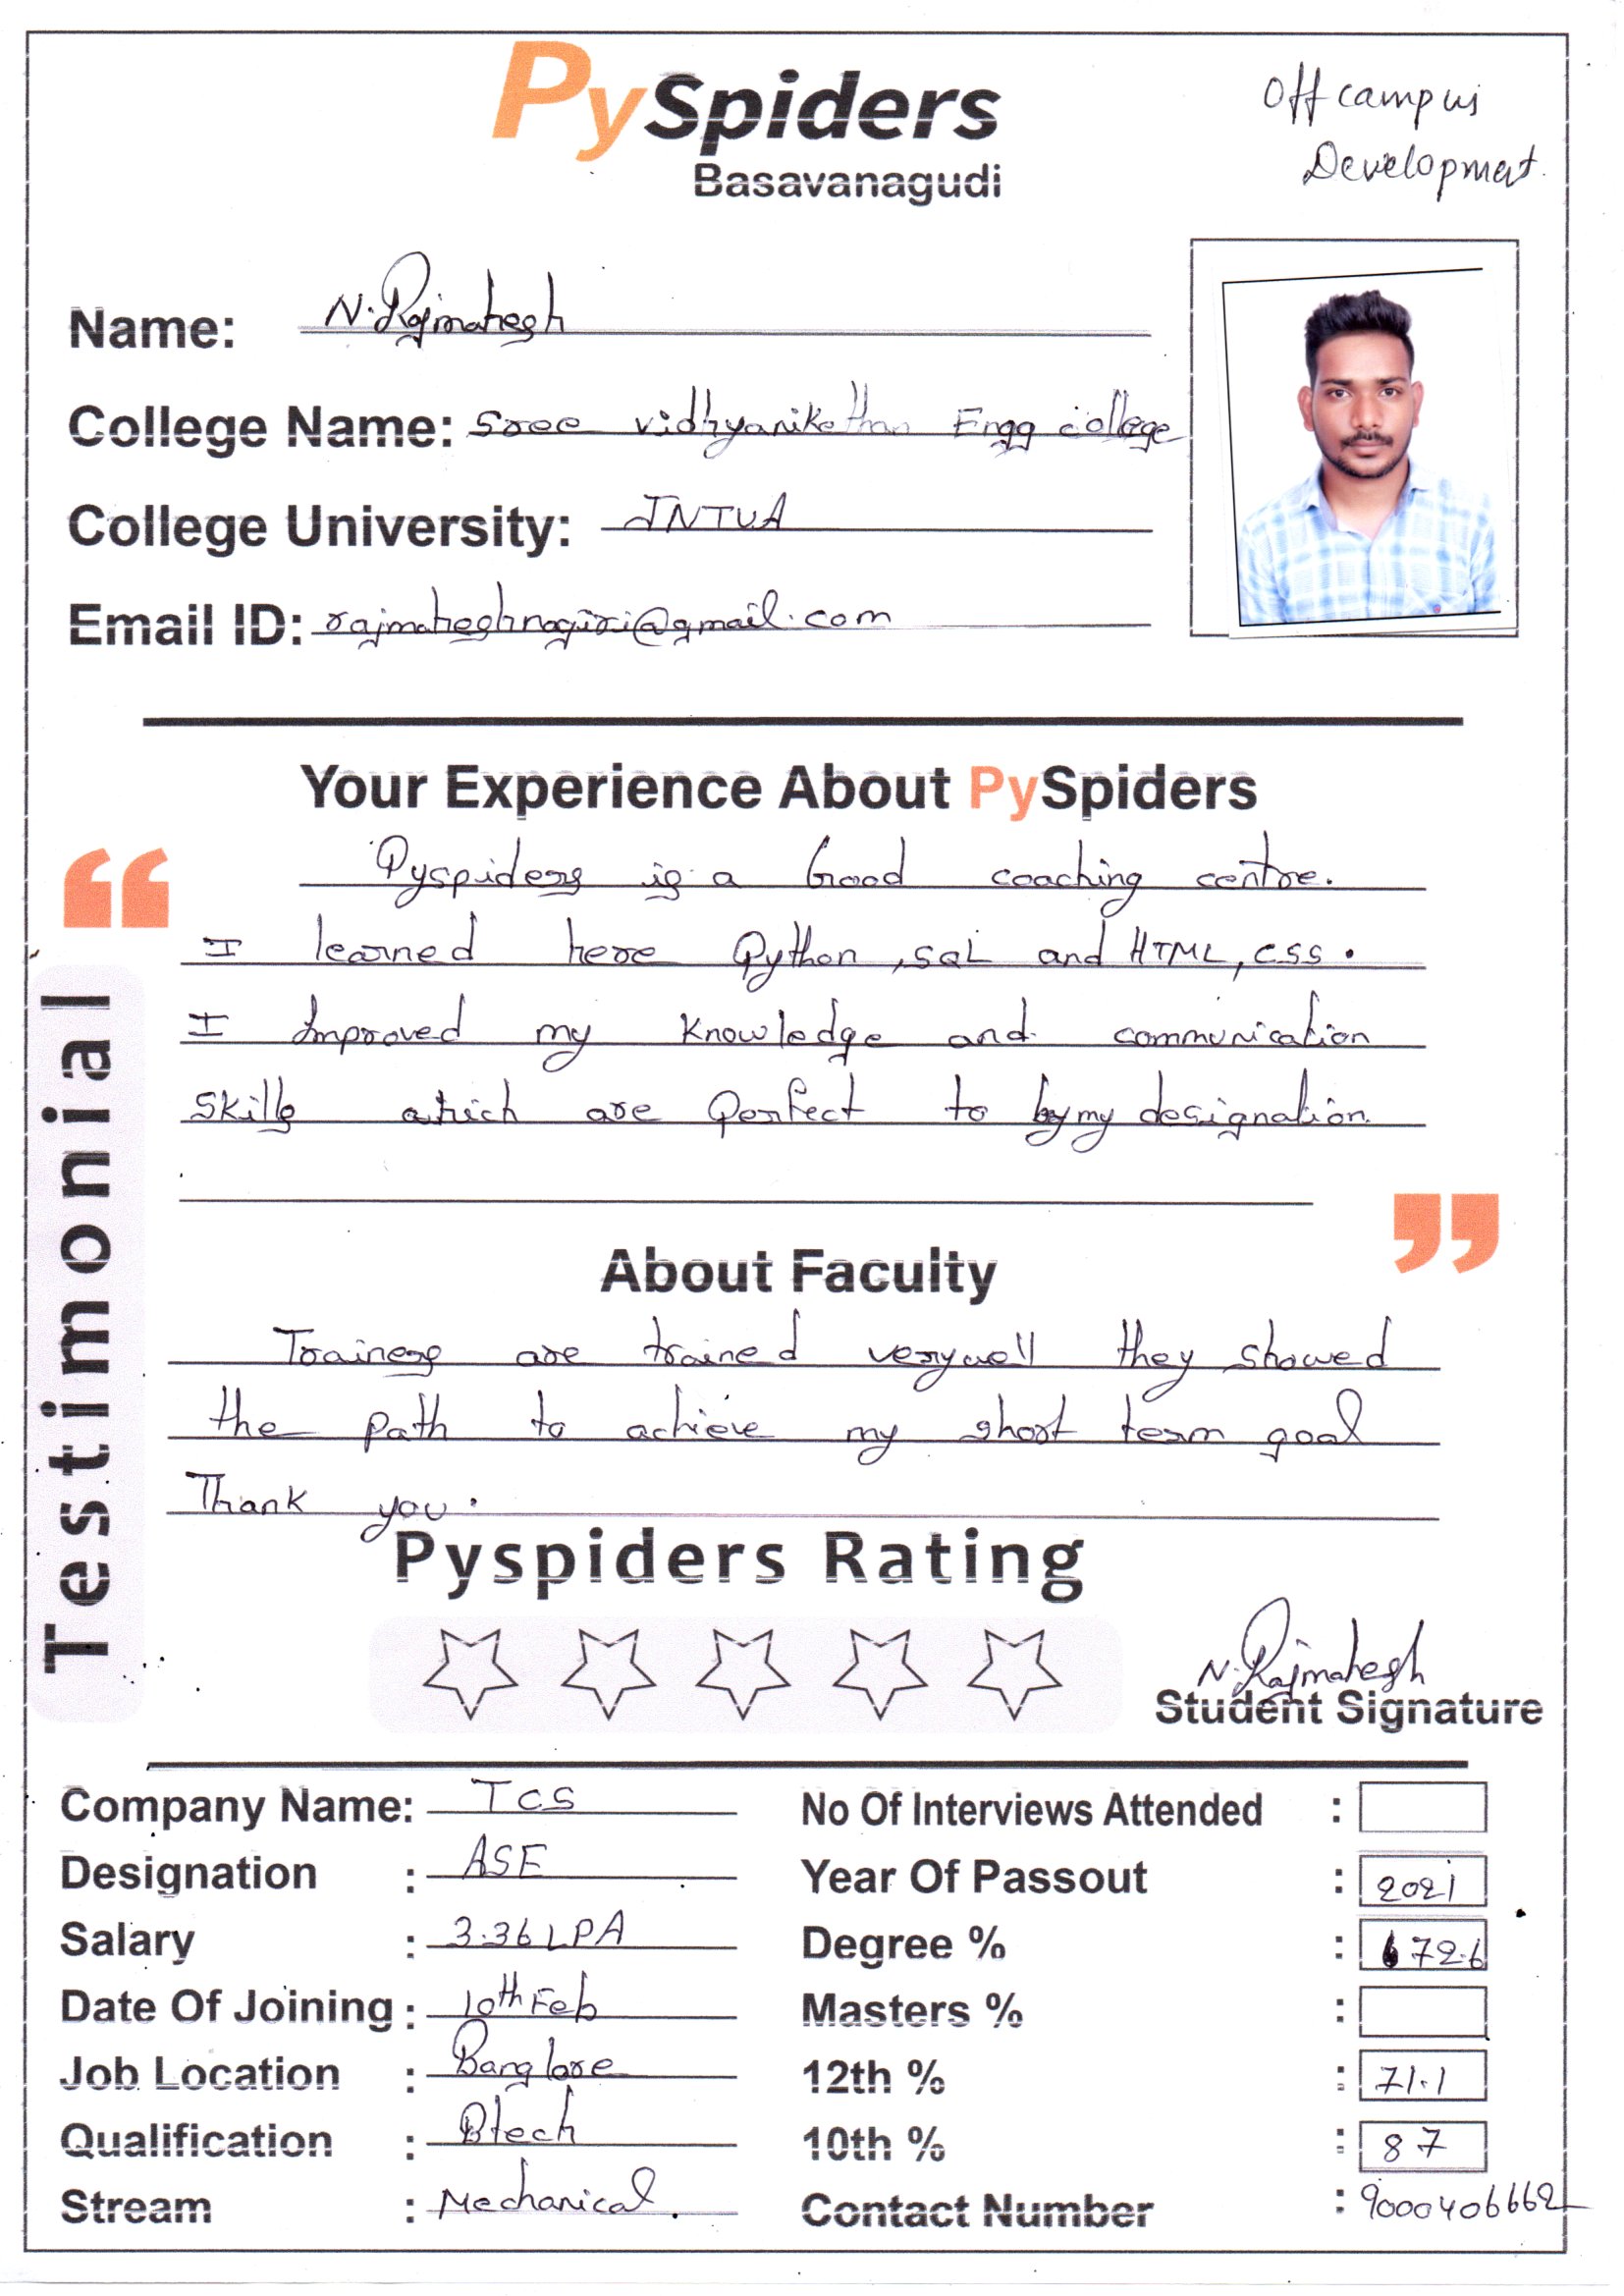 PySpiders
Basavanagudi
Off campus
Development.
Name: N. Rajmahesh
College Name: Sree vidhyanikethan Engg college
College University: JNTUA
Email ID: rajmaheshnagiri@gmail.com
Your Experience About PySpiders
Pyspiders is a Good coaching centre.
I learned here Python, SQL and HTML, CSS.
I Improved my Knowledge and communication
Skills which are Perfect to by my designation.
About Faculty
Trainers are trained verywell they showed
the path to achieve my short term goal
Thank you.
Testimonial
Pyspiders Rating
N. Rajmahesh
Student Signature
Company Name: TCS
Designation : ASE
Salary : 3.36 LPA
Date Of Joining : 10th Feb
Job Location : Banglore
Qualification : Btech
Stream : Mechanical.
No Of Interviews Attended :
Year Of Passout : 2021
Degree % : 72.6
Masters % :
12th % : 71.1
10th % : 87
Contact Number : 9000406662